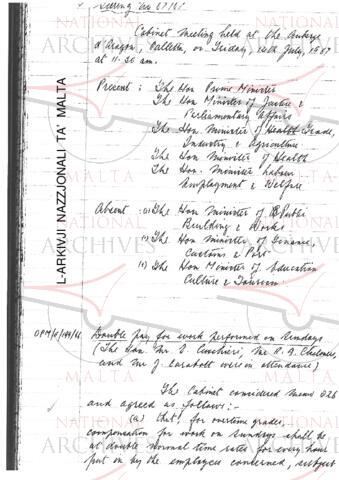 Cabinet Meeting held at the Auberge
d'Aragon, Valletta, on Friday, 14th July, 1967
at 11.30 am.
Present : The Hon Prime Minister
The Hon Minister of Justice &
Parliamentary Affairs
The Hon Minister of Health Trade,
Industry & Agriculture
The Hon Minister of Health
The Hon. Minister Labour
Employment & Welfare
Absent The Hon Minister of Public
Building & Works
The Hon Minister of Finance,
Customs & Port
The Hon Minister of Education
Culture & Tourism
Double pay for work performed on Sundays
(The Hon. Mr
and Mr J. were in attendance)
The Cabinet considered Memo 026
and agreed as follows :-
(a) that, for overtime grades,
compensation for work on Sundays shall be
at double normal time rates for every hour
put in by the employees concerned, subject
L-ARKIVJI NAZZJONALI TA' MALTA
NATIONAL
ARCHIVES
MALTA